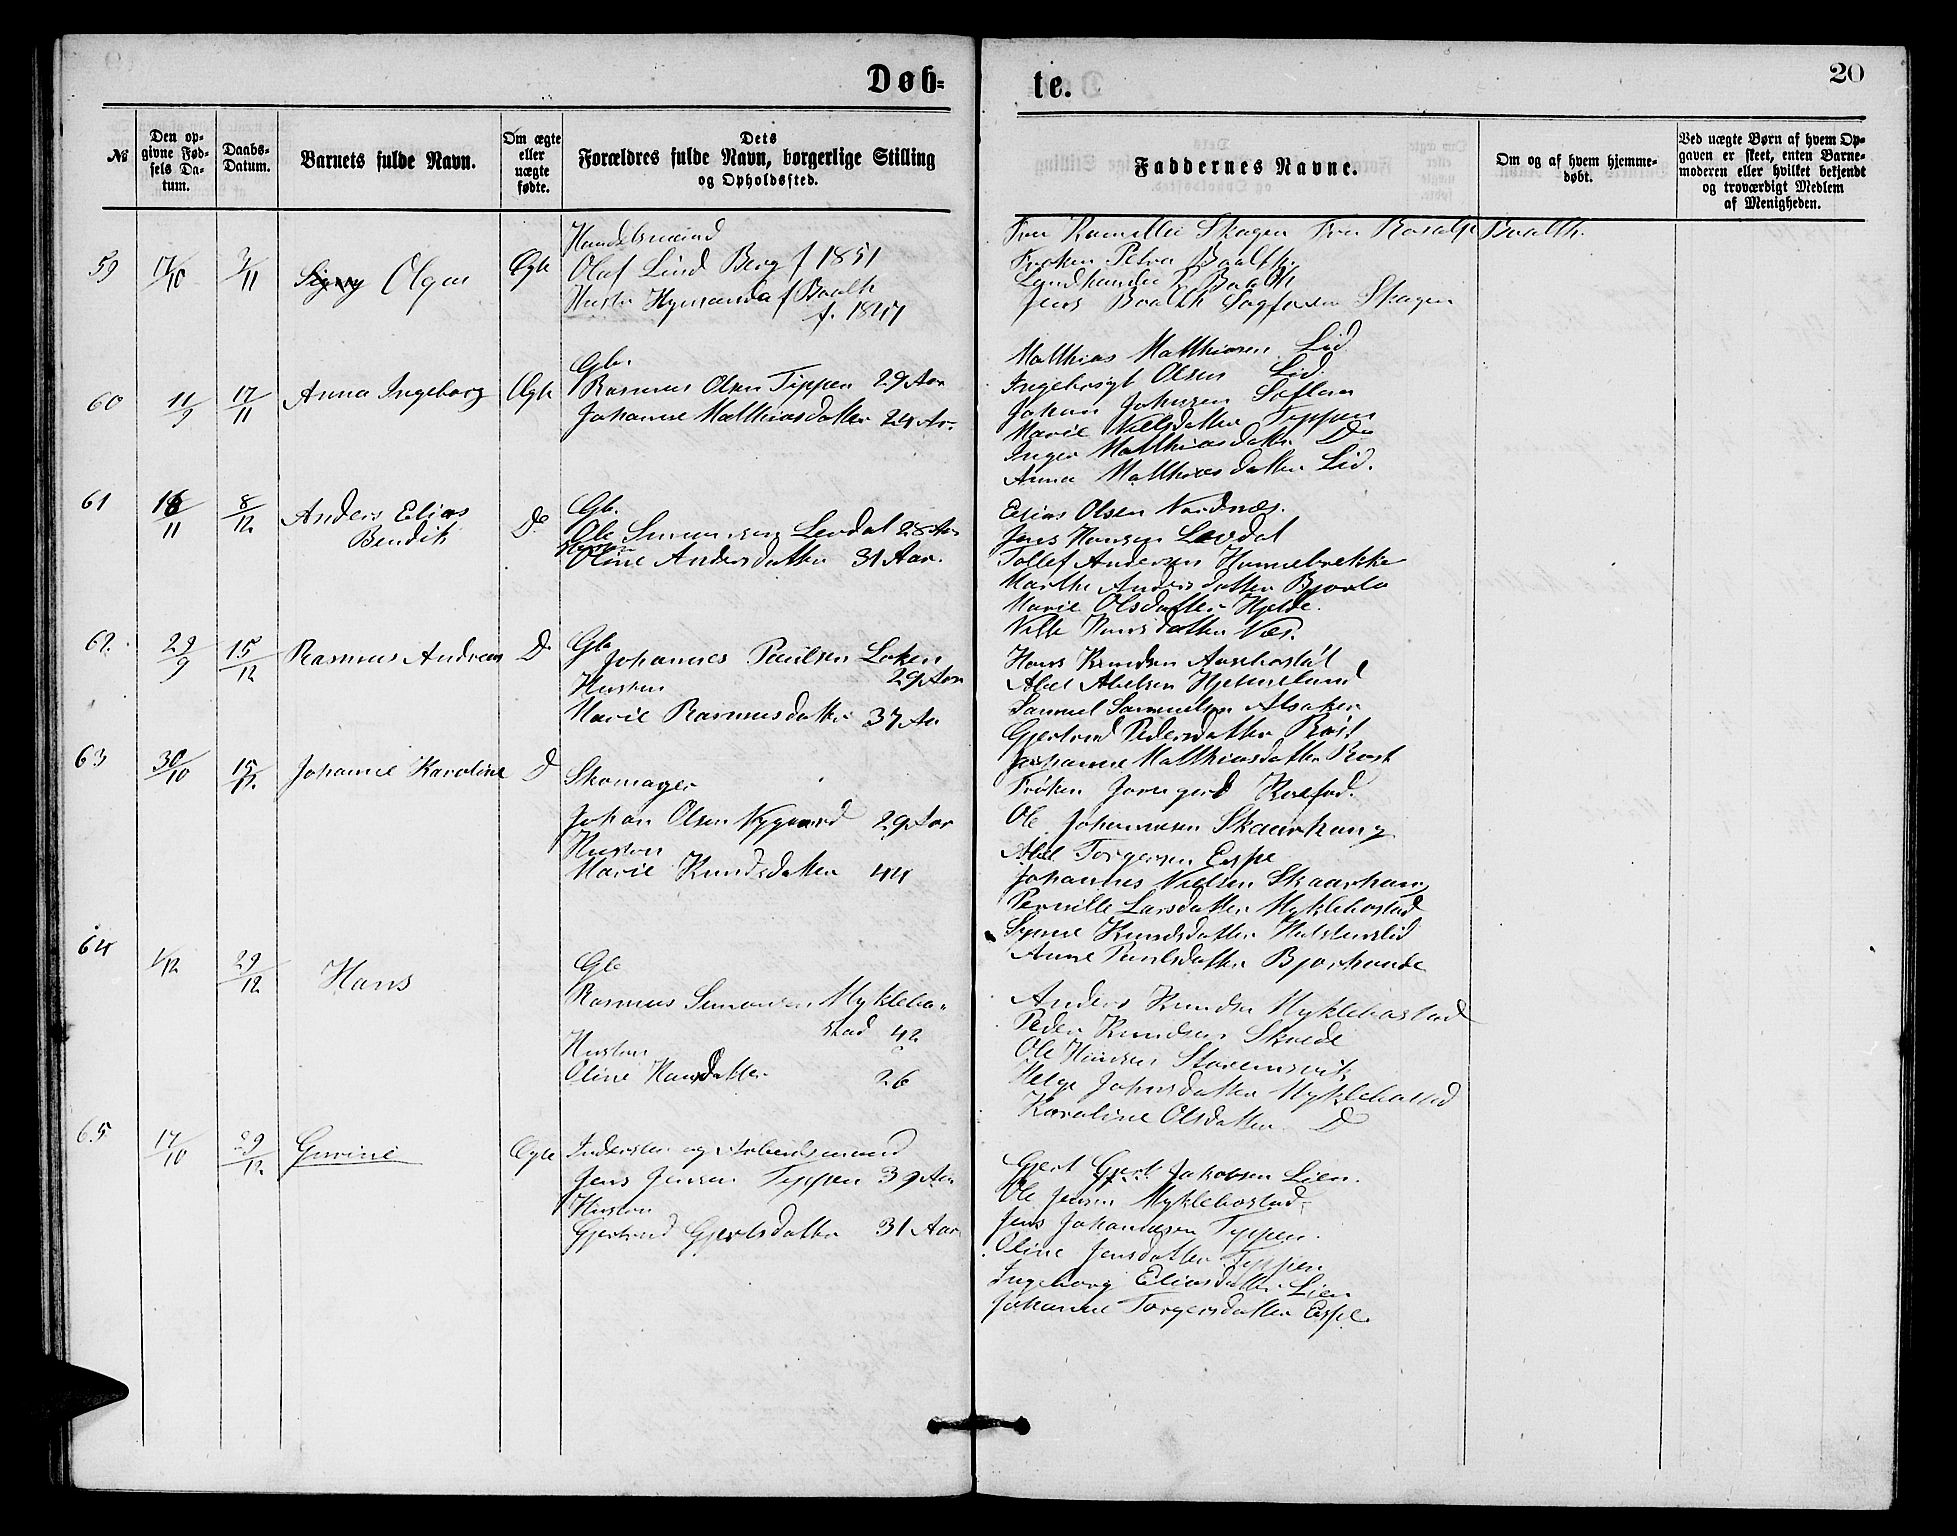 Døb-
№
Den op-
givne Fød-
sels Da-
tum.
Daabs-
Datum.
Barnets fulde Navn.
Om ægte
eller
uægte
fødte.
Dets
Forældres fulde Navn, borgerlige Stilling
og Opholdssted.
59
17/10
3/11
Signy Olga
Ægte
Handelsmand
Olaf Lind Berg f 1851
Hustr f Baalth
f. 1847
60
11/9
17/11
Anna Ingeborg
Ægte
Gbr.
Rasmus Olsen Tippen 29 Aar
Johanne Matthiasdatter 24 Aar
61
16/11
8/12
Anders Elias
Bendik
Do
Gb.
Ole Simonsen Levdal 28 Aar
Hustru
Oline Andersdatter 31 Aar.
62.
29/9
15/12
Rasmus Andreas
Do
Gb
Johannes Paulsen Løken
29 Aar
Hustru
Marie Rasmusdatter 37 Aar
63
30/10
15/12
Johanne Karoline
D
Skomager
Johan Olsen Nygaard 29 Aar
Hustru
Marie Knudsdatter 44
64
1/12
29/12
Hans
Gb
Rasmus Simonsen Myklebo-
stad 42
Hustru
Oline Hansdatter 26
65
17/10
29/12
Gurine
Ægte
Inderster og Arbeidsmand
Jens Jensen Tippen 39 Aar
Hustru
Gjertrud Gjertsdatter 31 Aar
te.
20
Faddernes Navne.
Om og af hvem hjemme-
døbt.
Ved uægte Børn af hvem Op-
gaven er skeet, enten Barne-
moderen eller hvilket bekjendt
og troværdigt Medlem
af Menigheden.
Fru Kamilla Skagen Fru Rosalie Baalth.
Frøken Petra Baalth.
Landhandler P. Baalth
Jens Baalth Sagfører Skagen
Matthias Matthiasen Lid.
Olsen Lid.
Johan Johnsen
Marie Nilsdatter Tippen
Inger Matthiasdatter Do
Anna Matthiasdatter Lid.
Elias Olsen Nordnæs.
Jens Hansen Levdal
Tollef Andersen Hunnebrekke
Marthe Andersdatter
Marie Olsdatter Hjelde.
Hansdatter Næs.
Hans Knudsen
Abel Abelsen
Samuel Samuelsen Alsaker
Gjertrud Pedersdatter
Johanne Matthiasdatter
Frøken
Ole Johannesen Skaarhaug
Abel Torgersen Espe
Johannes Nielsen Skaarhaug
Pernille Larsdatter Myklebostad
Knudsdatter
Anne Paulsdatter
Anders Knudsen Myklebostad
Peder Knudsen
Ole Hansen Storemsvik
Helge Johnsdatter Myklebostad
Karoline Olsdatter D
Gjert Gjert Jakobsen Lien.
Ole Jensen Myklebostad
Jens Johannesen Tippen.
Oline Jensdatter Tippen
Ingeborg Eliasdatter Lien
Johanne Torgersdatter Espe.